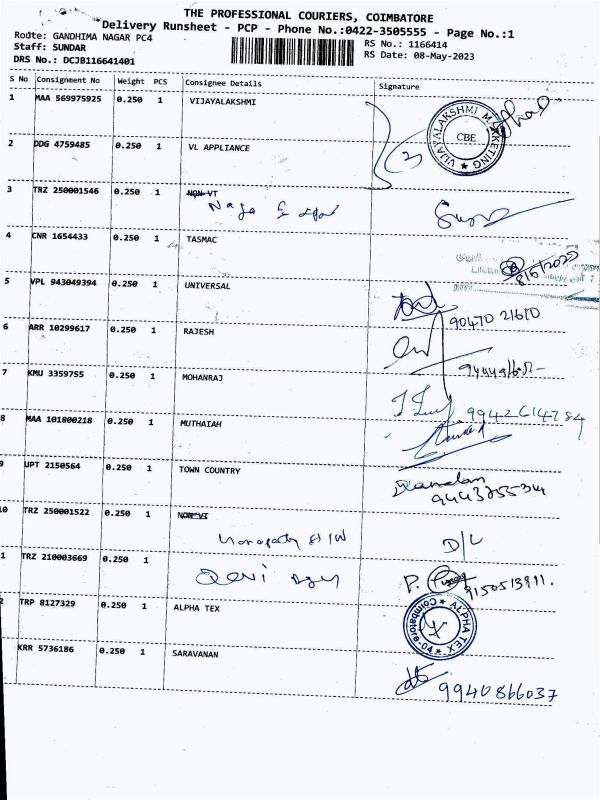 THE PROFESSIONAL COURIERS, COIMBATORE
Delivery Runsheet - PCP - Phone No.:0422-3505555 - Page No.:1
Rodte: GANDHIMA NAGAR PC4
RS No.: 1166414
Staff: SUNDAR
RS Date: 08-May-2023
DRS No.: DCJB116641401
S No Consignment No Weight PCS Consignee Details Signature
1 MAA 569975925 0.250 1 VIJAYALAKSHMI
VIJAYALAKSHMI MARKETING CBE
2 DDG 4759485 0.250 1 VL APPLIANCE
3 TRZ 250001546 0.250 1 NON-VT
4 CNR 1654433 0.250 1 TASMAC
8/5/2023
5 VPL 943049394 0.250 1 UNIVERSAL
90470 21610
6 ARR 10299617 0.250 1 RAJESH
7 KMU 3359755 0.250 1 MOHANRAJ
9942614784
8 MAA 101800218 0.250 1 MUTHAIAH
9 UPT 2150564 0.250 1 TOWN COUNTRY
10 TRZ 250001522 0.250 1 NON-VT
D/L
1 TRZ 210003669 0.250 1
P.
9150513911.
2 TRP 8127329 0.250 1 ALPHA TEX
ALPHA TEX Coimbatore-04
KRR 5736186 0.250 1 SARAVANAN
9940866037